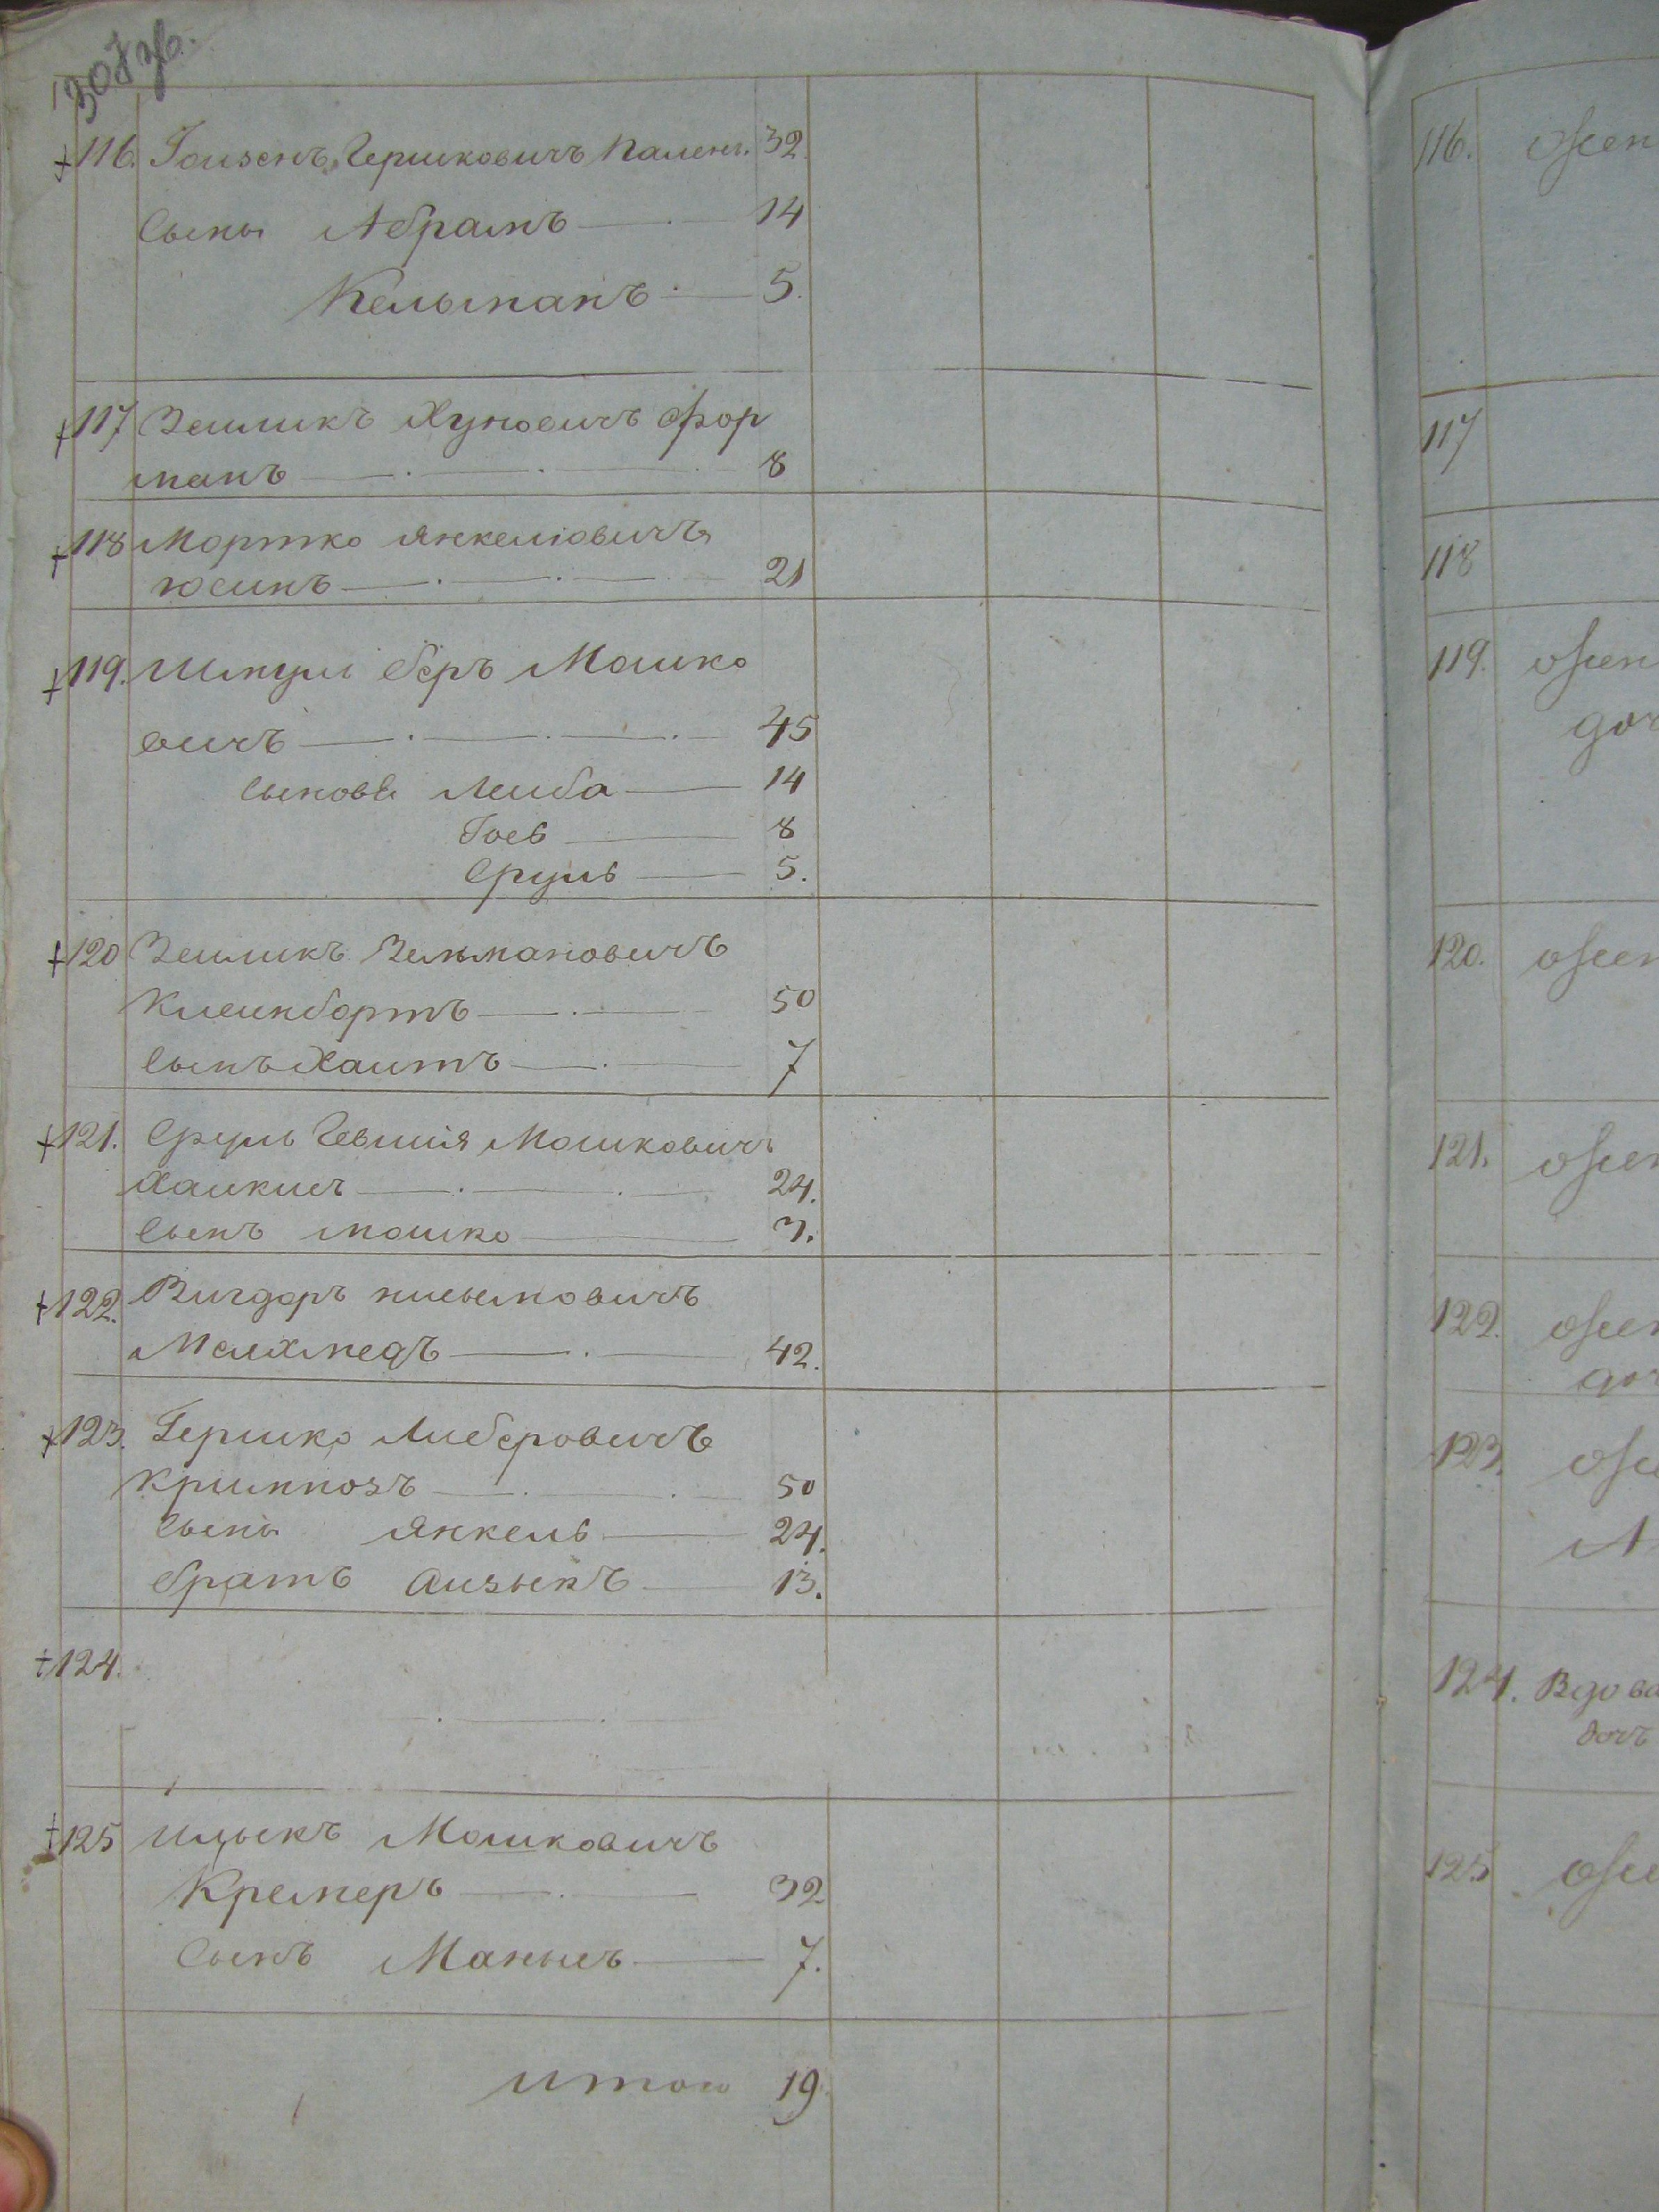 116. Гоизенъ Гершковичъ Каменъ. 32.
Сыны Абрамъ 14
Кельманъ 5.
117 Зейликъ Хуновичъ Фор
манъ 8
118 Мортко Янкелiовичъ
Юсимъ 21
119. Шмулi Беръ Мошко
вичъ 45
Сыновья Лейба 14
Гоев 8
Сруль 5.
120 Зейликъ Зельмановичъ
Клейнбортъ 50
Сынъ Хаимъ 7
121. Сруль Гевшiя Мошковичъ
Хаикисъ 24.
Сынъ Мошко 3.
122. Вигдоръ Нисымовичъ
Меламедъ 42.
123. Гершко Либеровичъ
Кримнозъ 50
Сыны Янкель 24.
братъ Аизыкъ 13.
124.
125 Ицыкъ Мошковичъ
Кремеръ 32
Сынъ Манысъ 7.
Итого 19.
116. Жен
117
118
119. Жен
доч
120. Жен
121. Жен
122. Жен
доч
123. Же
124. Вдова
дочъ
125 Же